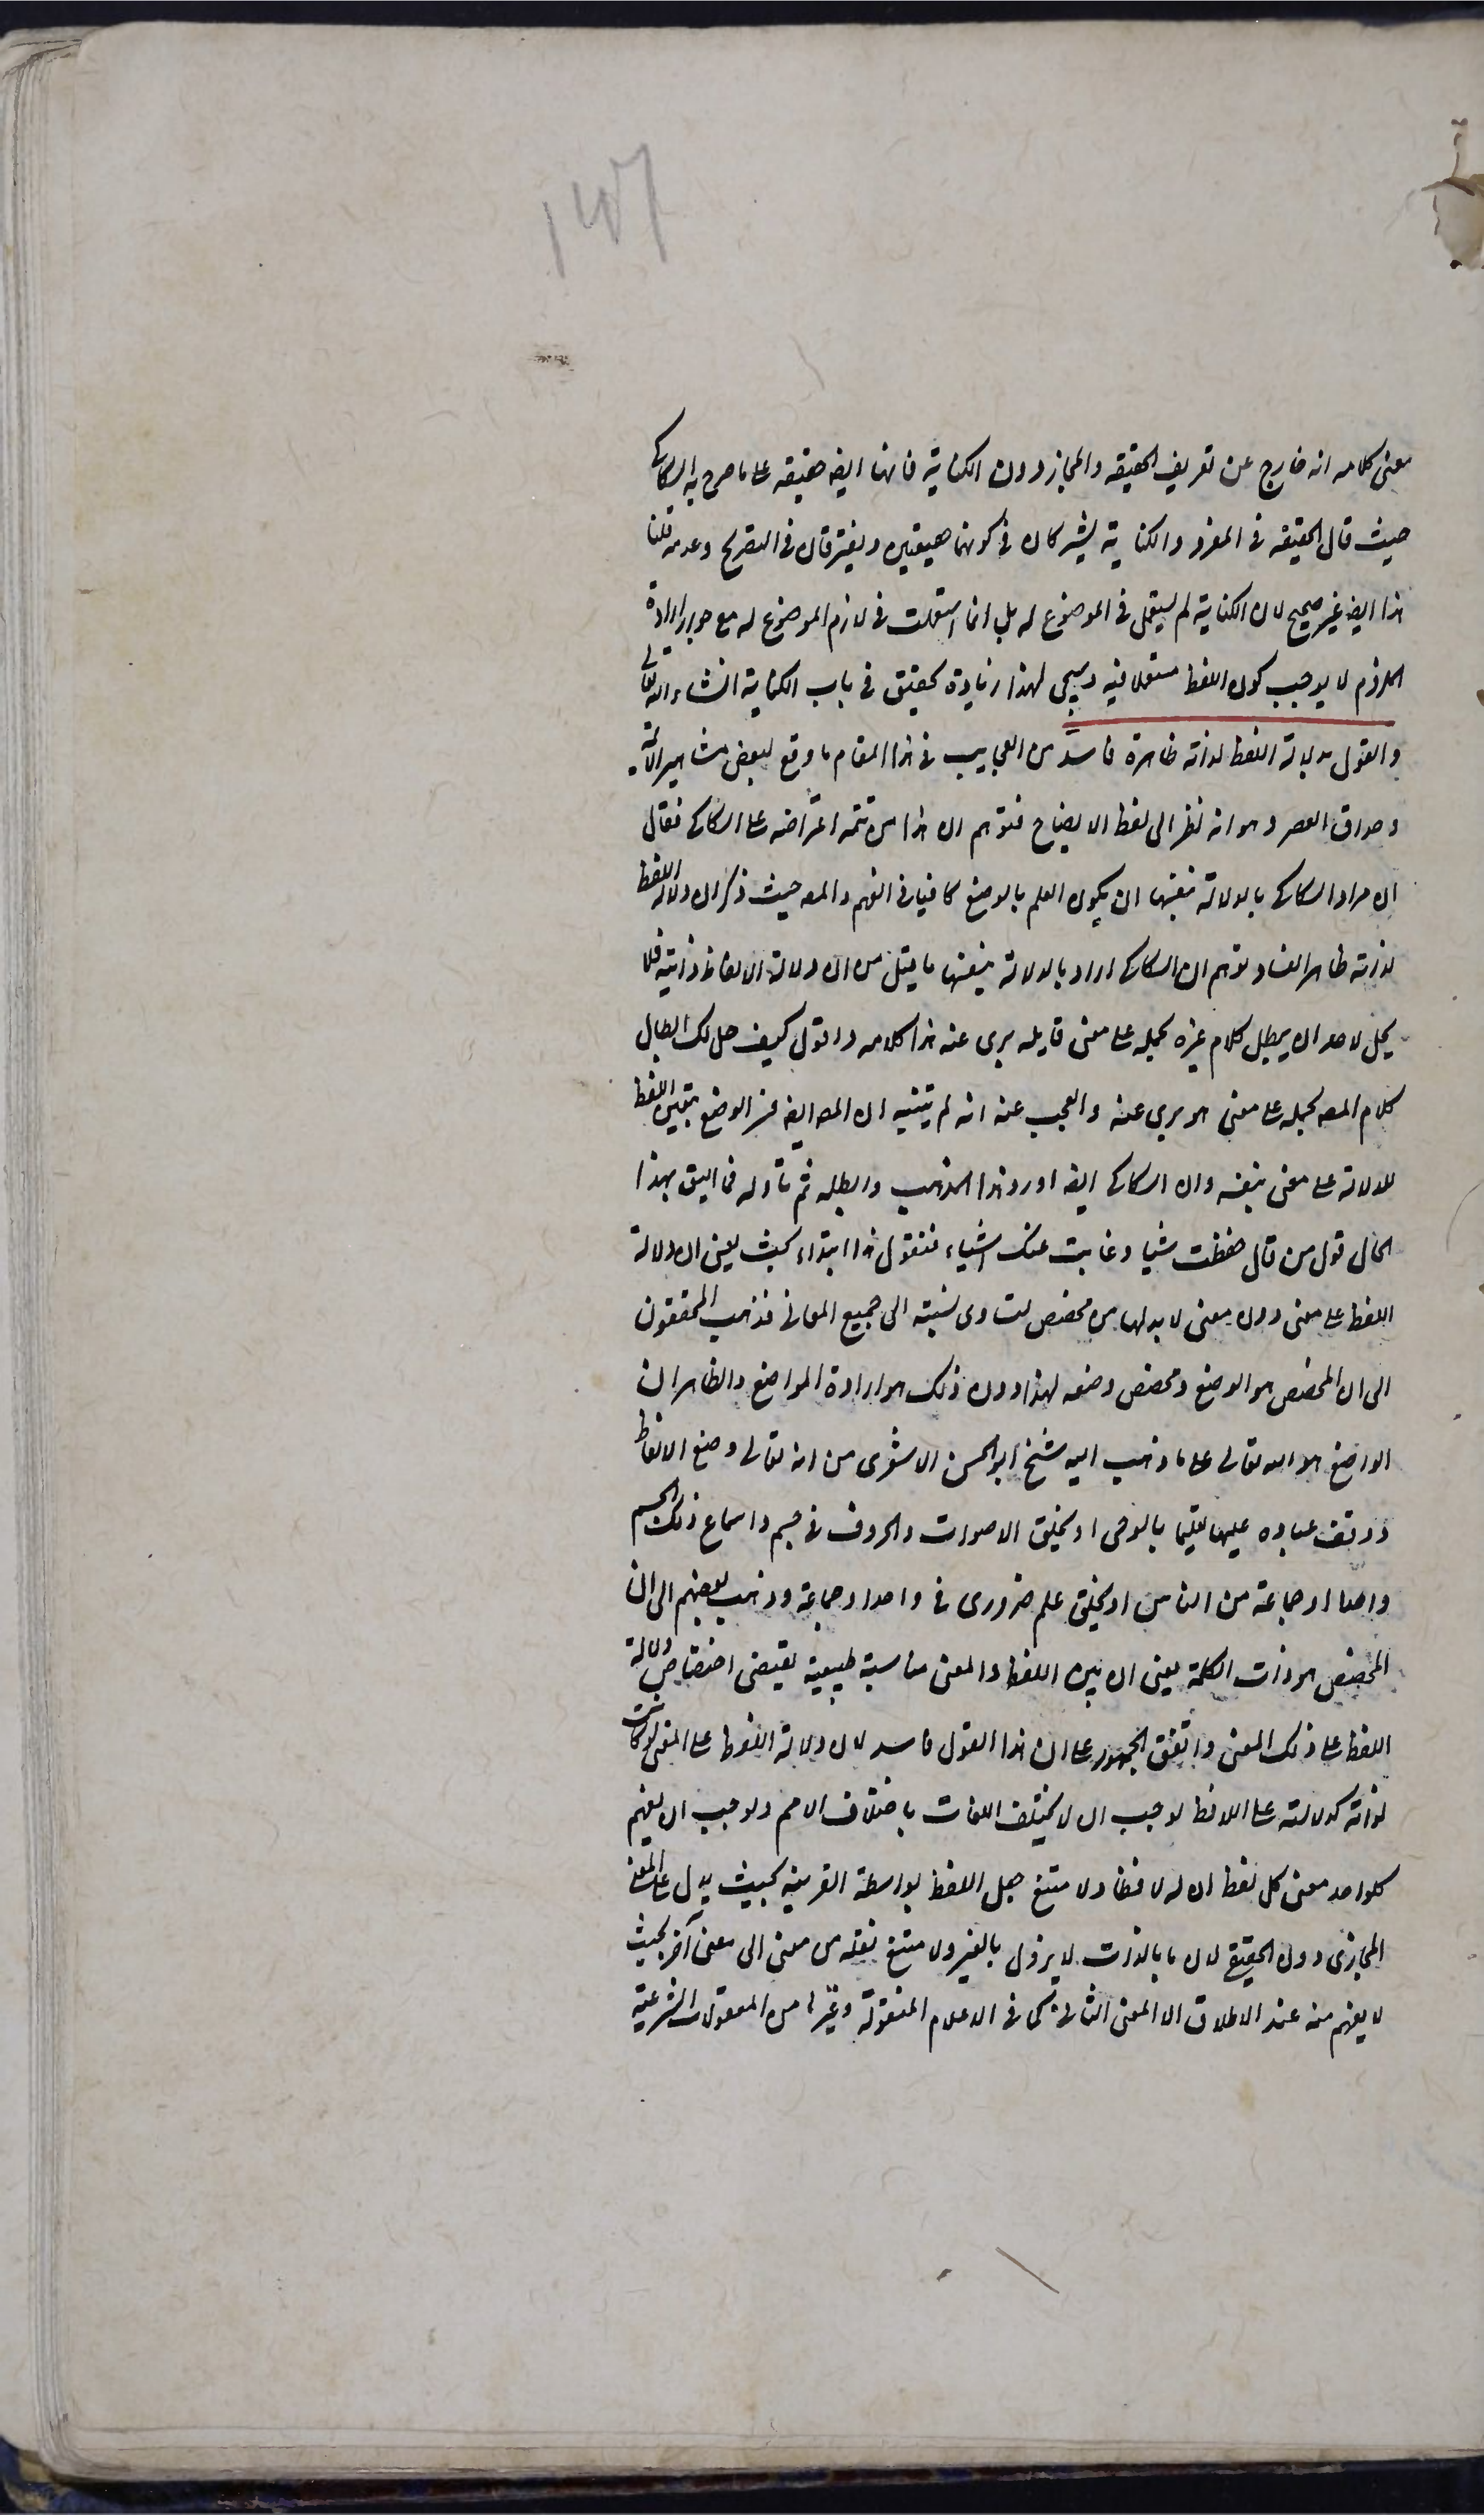 معنى كلامه انه خارج عن تعريف الحقيقه والمجاز دون الكناية فانها ايضا حقيقه على ما صرح به السكاكى
حيث قال الحقيقه فى المفرد والكناية يشتركان فى كونهما حقيقتين ويفترقان فى التصريح وعدمه قلنا
هذا ايضا غير صحيح لان الكناية لم يستعمل فى الموضوع له بل انما استعملت فى لازم الموضوع له مع جواز ارادة
الملزوم لا يوجب كون اللفظ مستعملا فيه وسيجى لهذا زيادة تحقيق فى باب الكناية انشاء الله تعالى
والقول بدلالة اللفظ لذاته ظاهره فاسد من العجايب فى هذا المقام ما وقع لبعض مشاهير الائمة
وحداق العصر وهو انه نظر الى لفظ الايضاح فتوهم ان هذا من تتمه اعتراضه على السكاكى فقال
ان مراد السكاكى بالدلالة بنفسها ان يكون العلم بالوضع كافيا فى الفهم والمصـ حيث ذكر ان دلالة اللفظ
لذاته ظاهر الفساد توهم ان السكاكى اراد بالدلالة بنفسها ما يقال من ان دلالة الالفاظ ذاتية فلا
يحل لاحد ان يبطل كلام غيره بحمله على معنى قايله برى عنه هذا كلامه واقول كيف حل لك ابطال
كلام المصـ بحمله على معنى هو برى عنه والعجب عنه انه لم يتنبه ان المصـ ايضا فسر الوضع بتعيين اللفظ
للدلالة على معنى بنفسه وان السكاكى ايضا اورد هذا المذهب وابطله ثم تأوله فما اليق بهذا
الحال قول من قال حفظت شيا وغابت عنك اشياء فنقول هذا ابتداء بحث يعنى ان دلالة
اللفظ على معنى دون معنى لا بد لها من مخصص لتساوى نسبته الى جميع المعانى فذهب المحققون
الى ان المخصص هو الوضع ومخصص وضعه لهذا دون ذلك هو ارادة الواضع والظاهر ان
الواضع هو الله تعالى على ما ذهب اليه شيخ ابو الحسن الاشعرى من انه تعالى وضع الالفاظ
ووقف عباده عليها تعليما بالوحى او بخلق الاصوات والحروف فى جسم واسماع ذلك الجسم
واحدا او جماعة من الناس او بخلق علم ضرورى فى واحد او جماعة وذهب بعضهم الى ان
المخصص هو ذات الكلمة يعنى ان بين اللفظ والمعنى مناسبة طبيعية يقتضى اختصاص دلالة
اللفظ على ذلك المعنى واتفق الجمهور على ان هذا القول فاسد لان دلالة اللفظ على المعنى لو كانت
لذاته كدلالته على اللافظ لوجب ان لا يختلف اللغات باختلاف الامم ولوجب ان يفهم
كلواحد معنى كل لفظ ان له لافظا ولا متنع جعل اللفظ بواسطة القرينه بحيث يدل على المعنى
المجازى دون الحقيقى لان ما بالذات لا يزول بالغير ولا متنع نقله من معنى الى معنى آخر بحيث
لا يفهم منه عند الاطلاق الا المعنى الثانى كما فى الاعلام المنقولة وغيرها من المنقولات الشرعية